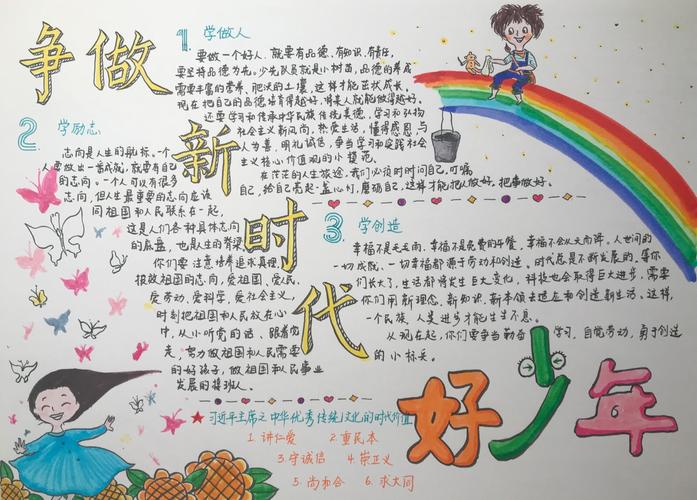 争做
新
时
代
好少年
1. 学做人
要做一个好人，就要有品德、有知识、有责任，
要坚持品德为先。少先队员就是小树苗，品德的养成
需要丰富的营养、肥沃的土壤，这样才能茁壮成长。
现在把自己的品德培育得越好，将来人就能做得越好。
还要学习和传承中华民族传统美德，学习和弘扬
社会主义新风尚，热爱生活，懂得感恩，与
人为善，明礼诚信，争当学习和实践社会
主义核心价值观的小模范。
在茫茫的人生旅途，我们必须时时问自己，叮嘱
自己，给自己亮起一盏心灯，磨砺自己，这样才能把人做好，把事做好。
2 学励志
志向是人生的航标。一个
人要做出一番成就，就要有自己
的志向。一个人可以有很多
志向，但人生最重要的志向应该
同祖国和人民联系在一起，
这是人们各种具体志向
的底盘，也是人生的脊梁。
你们要注意培养追求真理、
报效祖国的志向，爱祖国、爱人民、
爱劳动、爱科学、爱社会主义，
时刻把祖国和人民放在心
中，从小听党的话、跟着党
走，努力做祖国和人民需要
的好孩子，做祖国和人民事业
发展的接班人。
3 学创造
幸福不是毛毛雨，幸福不是免费的午餐，幸福不会从天而降。人世间的
一切成就、一切幸福都源于劳动和创造。时代总是不断发展的，等你
们长大了，生活都将发生巨大变化，科技也会取得巨大进步，需要
你们用新理念、新知识、新本领去适应和创造新生活。这样，
一个民族、人类进步才能生生不息。
从现在起，你们要争当勤奋学习、自觉劳动、勇于创造
的小标兵。
★习近平主席之中华优秀传统文化的时代价值
1. 讲仁爱 2. 重民本
3. 守诚信 4. 崇正义
5. 尚和合 6. 求大同